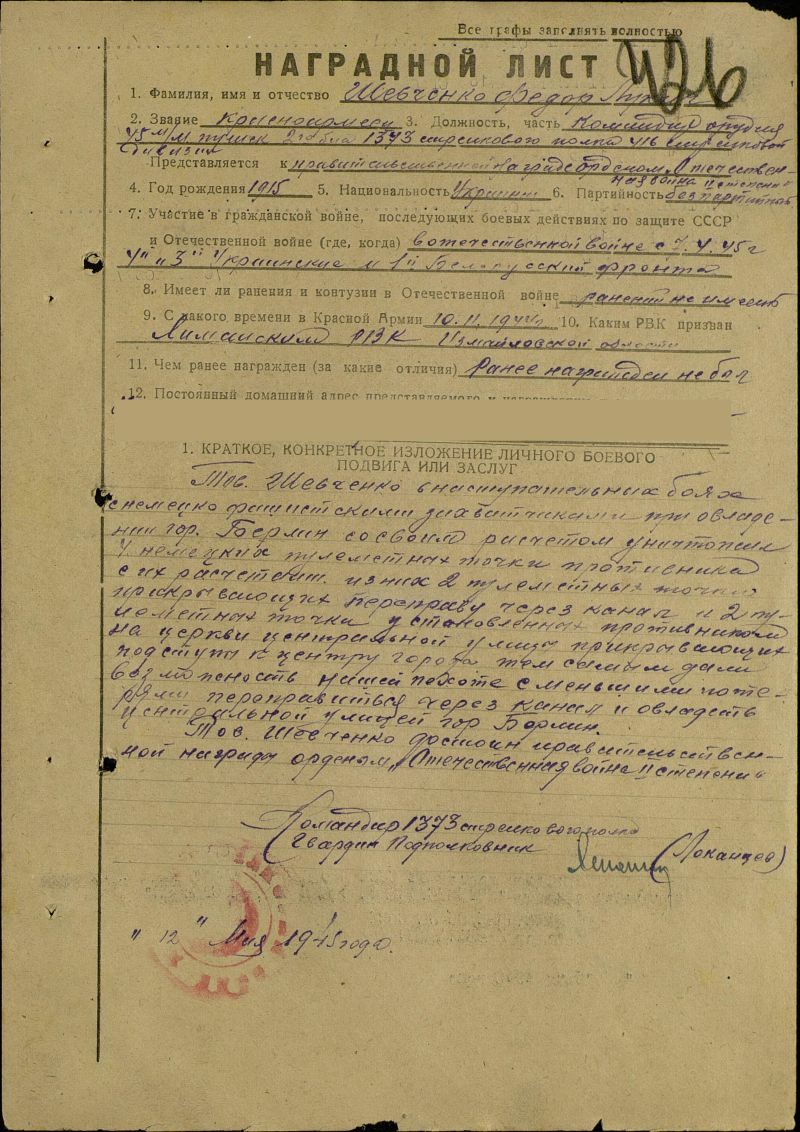 Все графы заполнять полностью
НАГРАДНОЙ ЛИСТ
426
1. Фамилия, имя и отчество Шевченко Федор
2. Звание Красноармеец 3. Должность, часть Командир орудия
45 м/м пушек 1373 стрелкового полка 416 стрелковой
дивизии
Представляется к правительственной награде орденом "Отечествен-
ная война II степени"
4. Год рождения 1915 5. Национальность Украинец 6. Партийность безпартийный
7. Участие в гражданской войне, последующих боевых действиях по защите СССР
и Отечественной войне (где, когда) в отечественной войне с 45 г
4й и 3й Украинские и 1й Белорусский фронта
8. Имеет ли ранения и контузии в Отечественной войне ранений не имеет
9. С какого времени в Красной Армии 1944 10. Каким РВК призван
Лиманским РВК Измаиловской области
11. Чем ранее награжден (за какие отличия) Ранее награжден не был
12. Постоянный домашний адрес представляемого к награждению
1. КРАТКОЕ, КОНКРЕТНОЕ ИЗЛОЖЕНИЕ ЛИЧНОГО БОЕВОГО
ПОДВИГА ИЛИ ЗАСЛУГ
Тов. Шевченко в наступательных боях
с немецко фашистскими захватчиками при овладе-
нии гор. Берлин со своим расчетом уничтожил
4 немецких пулеметных точки противника
с их расчетом. из них 2 пулеметных точки
прикрывающих переправу через канал и 2 пу-
леметных точки установленных противником
на церкви центральной улицы прикрывающих
подступы к центру города тем самым дали
возможность нашей пехоте с меньшими поте-
рями переправиться через канал и овладеть
центральной улицей гор Берлин.
Тов. Шевченко достоин правительствен-
ной награды орденом "Отечественная война II степени"
Командир 1373 стрелкового полка
Гвардии Подполковник (Локанцев)
"12" Мая 1945 года.